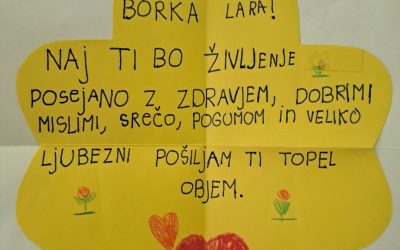 BORKA LARA!
NAJ TI BO ŽIVLJENJE
POSEJANO Z ZDRAVJEM, DOBRIMI
MISLIMI, SREČO, POGUMOM in VELIKO
LJUBEZNI POŠILJAM TI TOPEL
OBJEM.